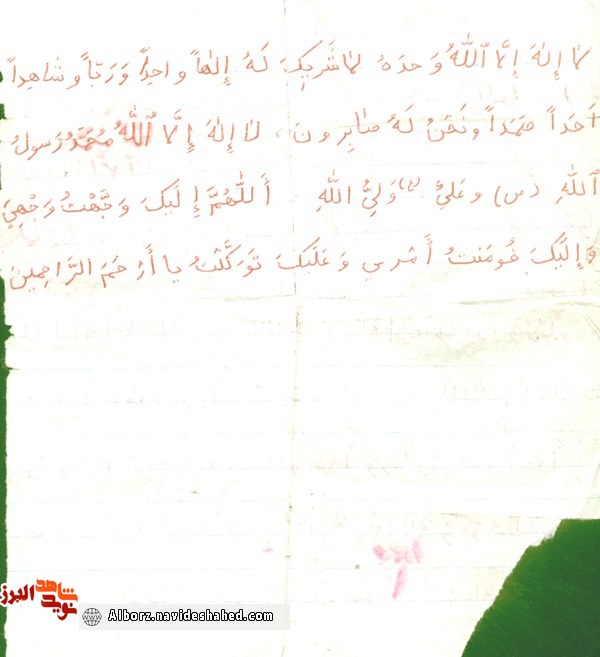 لا إِلهَ إِلَّا ٱللَّهُ وَحدَهُ لاشَريكَ لَهُ إِلهاً واحِداً وَرَبّاً و شاهِداً
اَحَداً صَمَداً ونَحنُ لَهُ صابِرون . لا إِلهَ إِلَّا ٱللَّهُ مُحَمَّدُ رَسولُ
ٱللهِ (ص) و عَليٌ (ع) وَلِيُّ اللهِ . أَللّٰهُمَّ إِلَيكَ وَجَّهْتُ وَجْهِيَ
وَإِلَيكَ فُوضتُ أَمْرى وَعَلَيكَ تَوَكَّلتُ يا أَرْحَمَ الرَّاحِمينَ
شاهد
نوید البرز
Alborz.navideshahed.com